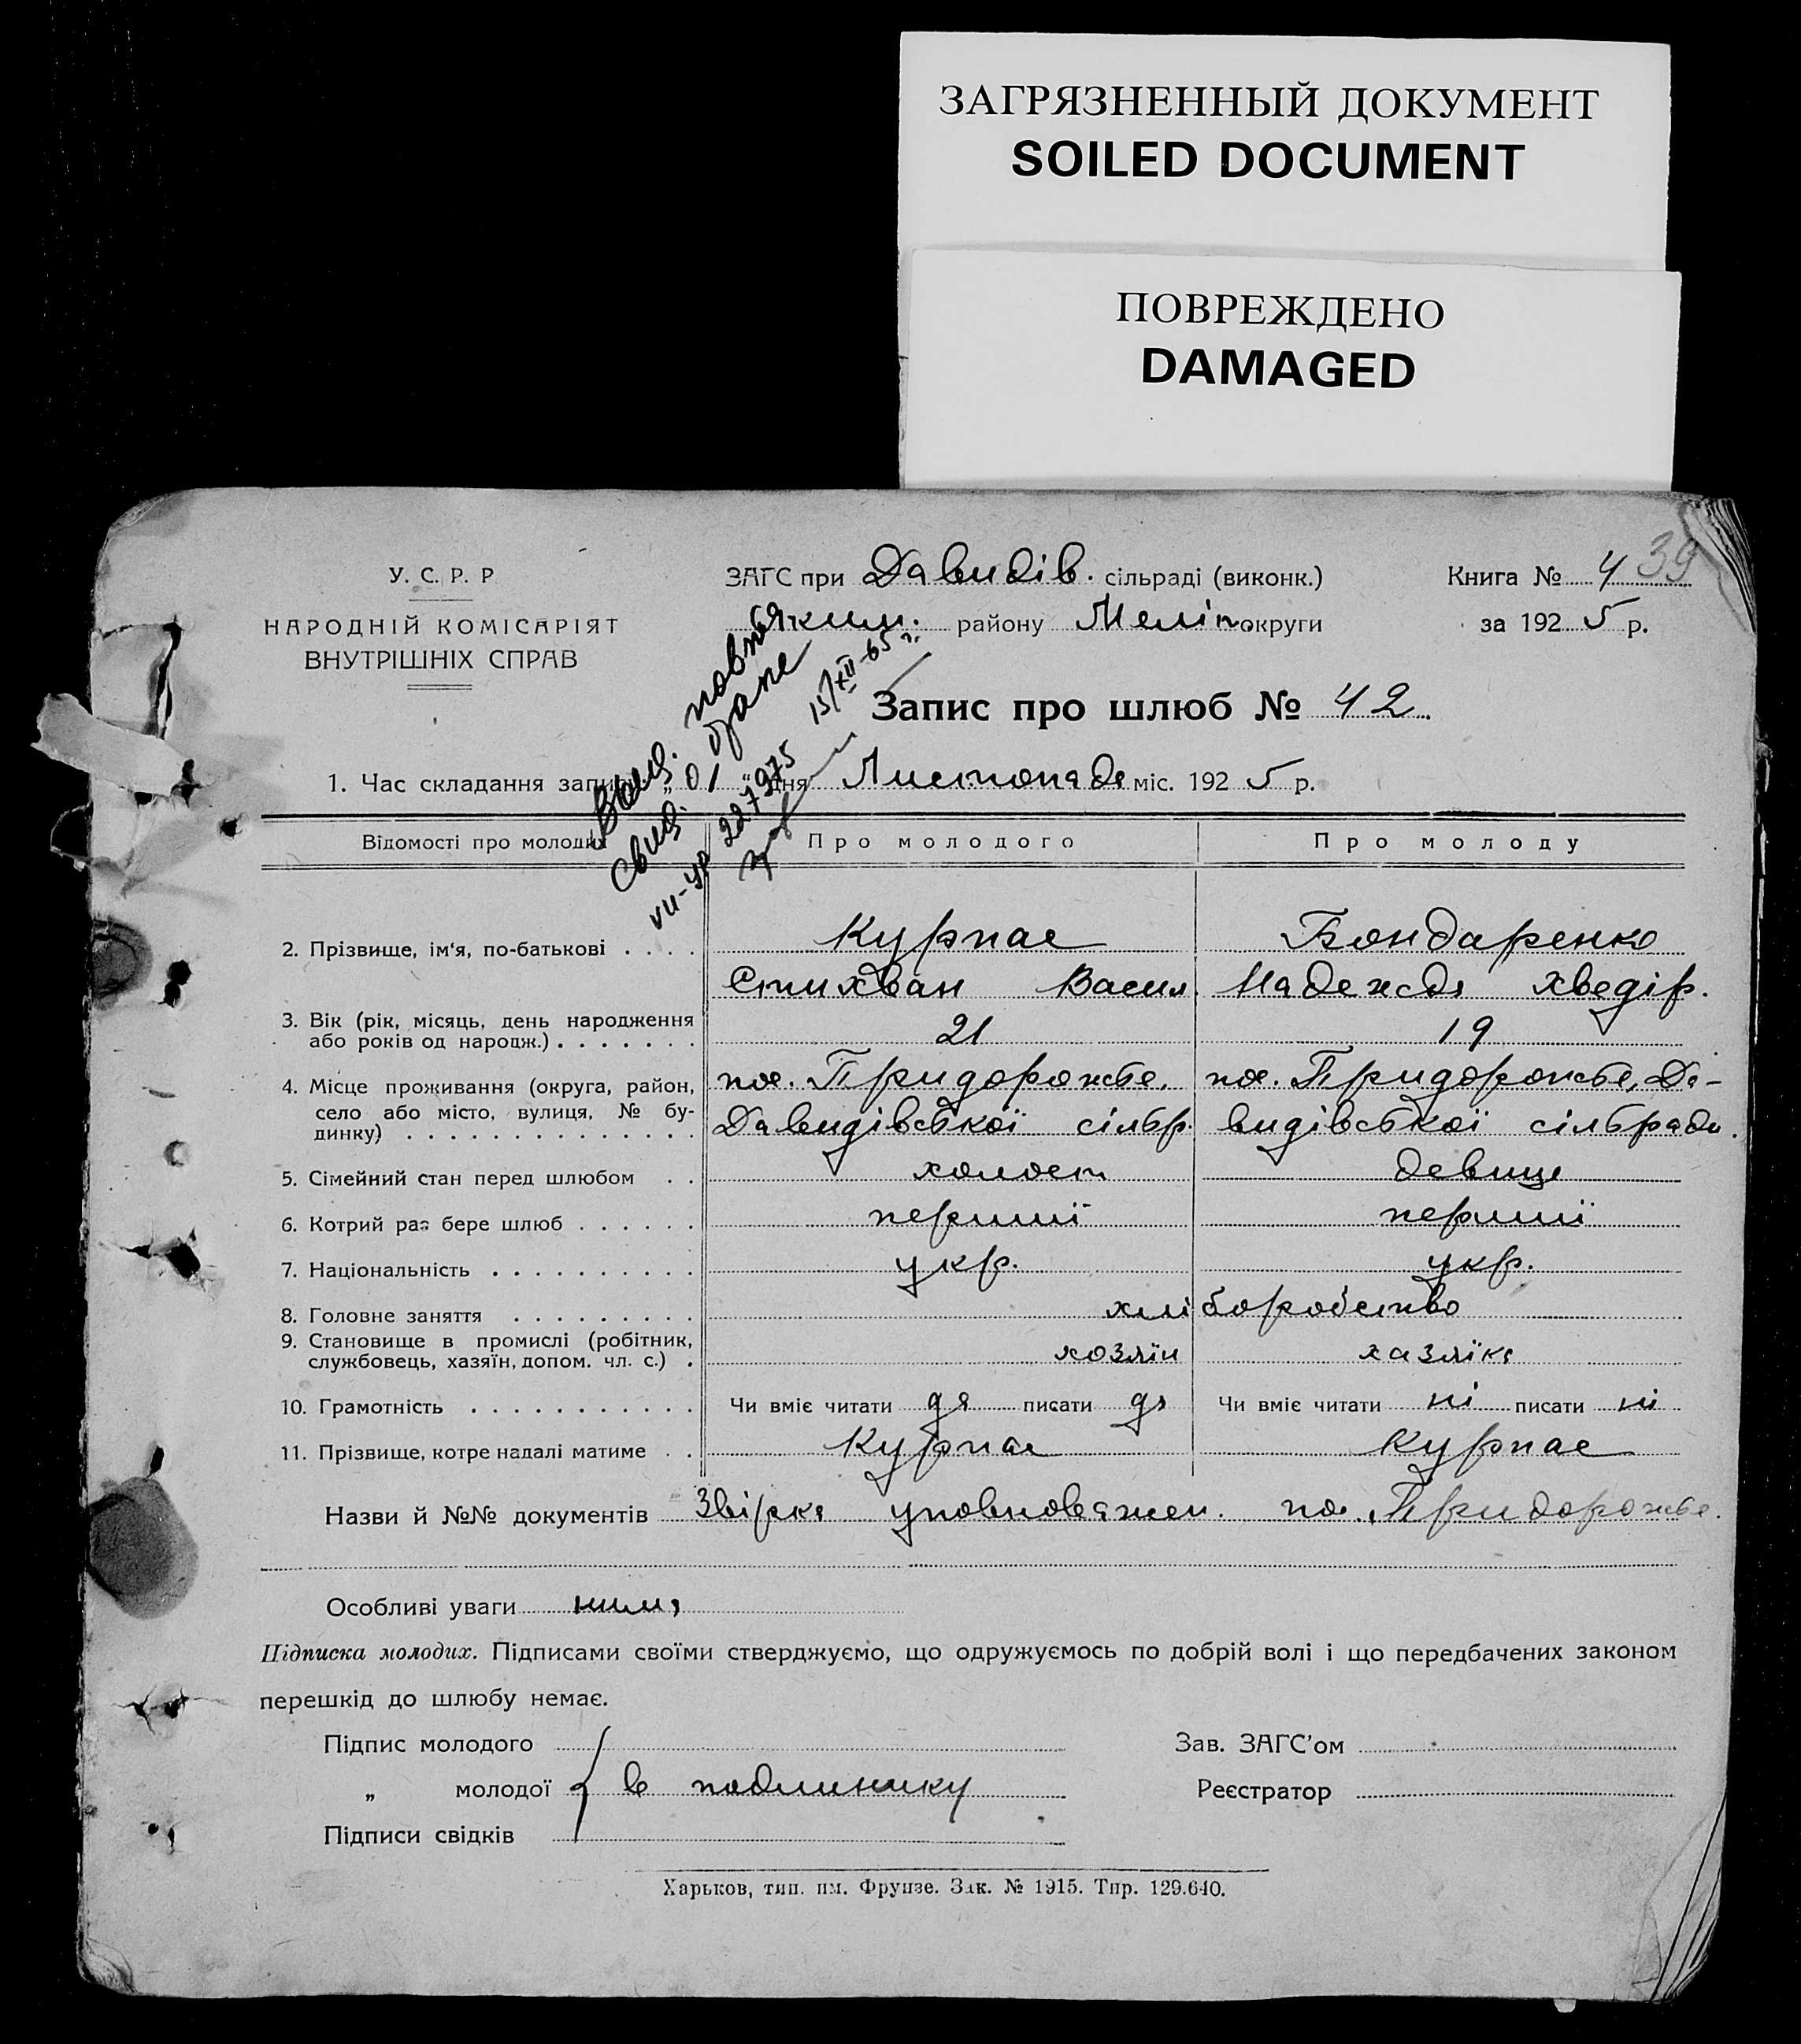 ЗАГРЯЗНЕННЫЙ ДОКУМЕНТ
SOILED DOCUMENT
ПОВРЕЖДЕНО
DAMAGED
У. С. Р. Р
НАРОДНІЙ КОМІСАРІЯТ
ВНУТРІШНІХ СПРАВ
ЗАГС при Давидів. сільраді (виконк.)
Яким. району Меліт. округи
Книга № 4 39
за 1925 р.
повт.
15/XII-65 г.
VII-УР 227975
Запис про шлюб № 42.
1. Час складання запису „01“ дня Листопада міс. 1925 р.
Відомості про молодих Про молодого Про молоду
2. Прізвище, ім'я, по-батькові . . . . Курпас Бондаренко
Стихван Васил. Надежда Хведір.
3. Вік (рік, місяць, день народження
або років од народж.) . . . . . . . 21 19
4. Місце проживання (округа, район, пос. Придорожнє, пос. Придорожнє, Да-
село або місто, вулиця, № бу-
динку) . . . . . . . . . . . . . . Давидівськоі сільр. видівськоі сільради.
5. Сімейний стан перед шлюбом . . холост девица
6. Котрий раз бере шлюб . . . . . . перший перший
7. Національність . . . . . . . . . . укр. укр.
8. Головне заняття . . . . . . . . . хліборобство
9. Становище в промислі (робітник,
службовець, хазяїн, допом. чл. с.) . хозяїн хазяїка
10. Грамотність . . . . . . . . . . . Чи вміє читати да писати да Чи вміє читати ні писати ні
11. Прізвище, котре надалі матиме . . Курпас Курпас
Назви й №№ документів Звірка уповноважен. пос. Придорожнє.
Особливі уваги нима
Підписка молодих. Підписами своїми стверджуємо, що одружуємось по добрій волі і що передбачених законом
перешкід до шлюбу немає.
Підпис молодого Зав. ЗАГС'ом
„ молодої в подлинику Реєстратор
Підписи свідків
Харьков, тип. им. Фрунзе. Зак. № 1915. Тир. 129.640.